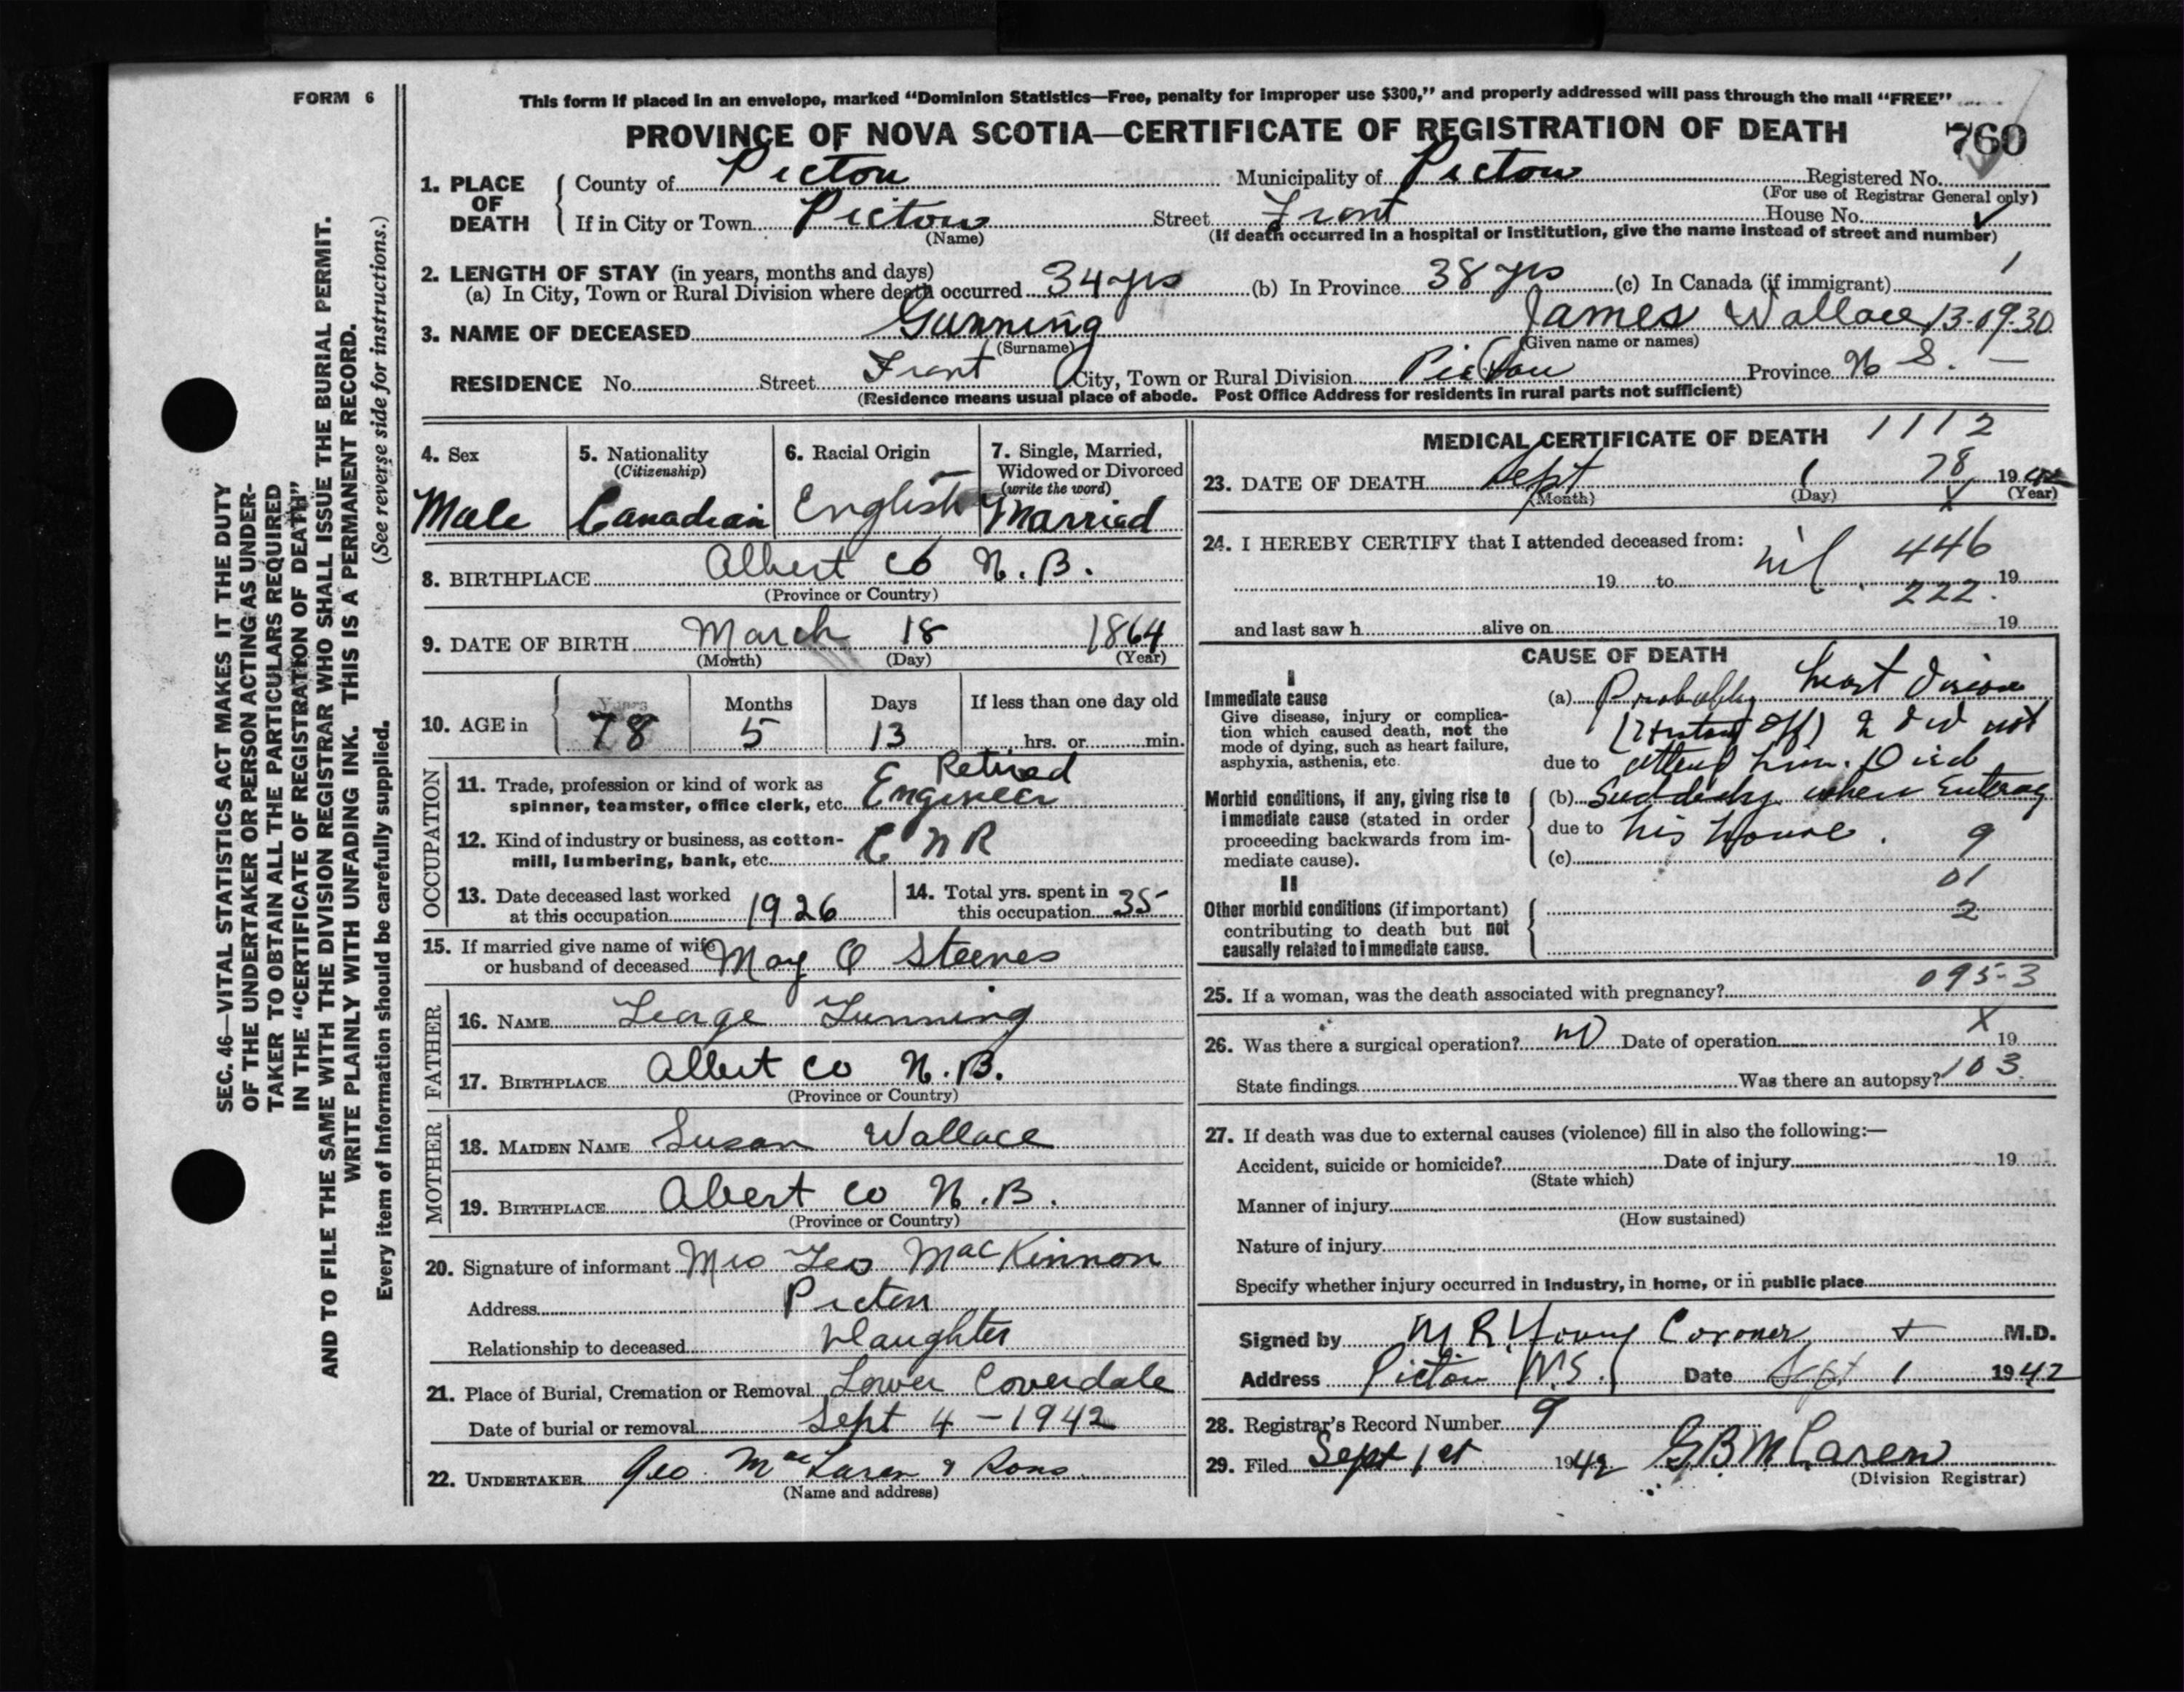 FORM 6
This form if placed in an envelope, marked "Dominion Statistics—Free, penalty for improper use $300," and properly addressed will pass through the mail "FREE"
PROVINCE OF NOVA SCOTIA—CERTIFICATE OF REGISTRATION OF DEATH
760
1. PLACE OF DEATH
County of Pictou Municipality of Pictou Registered No.
(For use of Registrar General only)
If in City or Town Pictou Street Front House No.
(Name) (If death occurred in a hospital or institution, give the name instead of street and number)
2. LENGTH OF STAY (in years, months and days)
(a) In City, Town or Rural Division where death occurred 34 yrs (b) In Province 38 yrs (c) In Canada (if immigrant) 1
3. NAME OF DECEASED Gunning James Wallace 13-09-30
(Surname) (Given name or names)
RESIDENCE No. Street Front City, Town or Rural Division Pictou Province N S. —
(Residence means usual place of abode. Post Office Address for residents in rural parts not sufficient)
4. Sex
Male
5. Nationality
(Citizenship)
Canadian
6. Racial Origin
English
7. Single, Married,
Widowed or Divorced
(write the word)
Married
8. BIRTHPLACE Albert Co N. B.
(Province or Country)
9. DATE OF BIRTH March 18 1864
(Month) (Day) (Year)
10. AGE in
Years Months Days If less than one day old
78 5 13 hrs. or min.
OCCUPATION
11. Trade, profession or kind of work as
spinner, teamster, office clerk, etc. Retired Engineer
12. Kind of industry or business, as cotton-
mill, lumbering, bank, etc. C N R
13. Date deceased last worked
at this occupation 1926
14. Total yrs. spent in
this occupation 35
15. If married give name of wife
or husband of deceased May O Steeves
FATHER
16. NAME George Gunning
17. BIRTHPLACE Albert Co N. B.
(Province or Country)
MOTHER
18. MAIDEN NAME Susan Wallace
19. BIRTHPLACE Abert Co N. B.
(Province or Country)
20. Signature of informant Mrs Geo MacKinnon
Address Pictou
Relationship to deceased Daughter
21. Place of Burial, Cremation or Removal Lower Coverdale
Date of burial or removal Sept 4 - 1942
22. UNDERTAKER Geo. MacLaren & Sons
(Name and address)
MEDICAL CERTIFICATE OF DEATH 1112
23. DATE OF DEATH Sept 1 78 1942
(Month) (Day) (Year)
24. I HEREBY CERTIFY that I attended deceased from:
nil 446
19 to 19
222.
and last saw h alive on 19
CAUSE OF DEATH
I
Immediate cause
Give disease, injury or complica-
tion which caused death, not the
mode of dying, such as heart failure,
asphyxia, asthenia, etc.
(a) Probably heart disease
I did not
due to attend him. Died
Morbid conditions, if any, giving rise to
immediate cause (stated in order
proceeding backwards from im-
mediate cause).
(b) Suddenly when Entering
due to his house. 9
(c)
01
II
Other morbid conditions (if important)
contributing to death but not
causally related to immediate cause.
2
25. If a woman, was the death associated with pregnancy? 095-3
26. Was there a surgical operation? no Date of operation X 19
State findings Was there an autopsy? 103
27. If death was due to external causes (violence) fill in also the following:—
Accident, suicide or homicide? Date of injury 19
(State which)
Manner of injury
(How sustained)
Nature of injury
Specify whether injury occurred in Industry, in home, or in public place
Signed by M R Young Coroner M.D.
Address Pictou N.S. Date Sept 1 1942
28. Registrar's Record Number 9
29. Filed Sept 1st 1942 G B McLaren
(Division Registrar)
SEC. 46—VITAL STATISTICS ACT MAKES IT THE DUTY
OF THE UNDERTAKER OR PERSON ACTING AS UNDER-
TAKER TO OBTAIN ALL THE PARTICULARS REQUIRED
IN THE "CERTIFICATE OF REGISTRATION OF DEATH"
AND TO FILE THE SAME WITH THE DIVISION REGISTRAR WHO SHALL ISSUE THE BURIAL PERMIT.
WRITE PLAINLY WITH UNFADING INK. THIS IS A PERMANENT RECORD.
Every item of information should be carefully supplied. (See reverse side for instructions.)